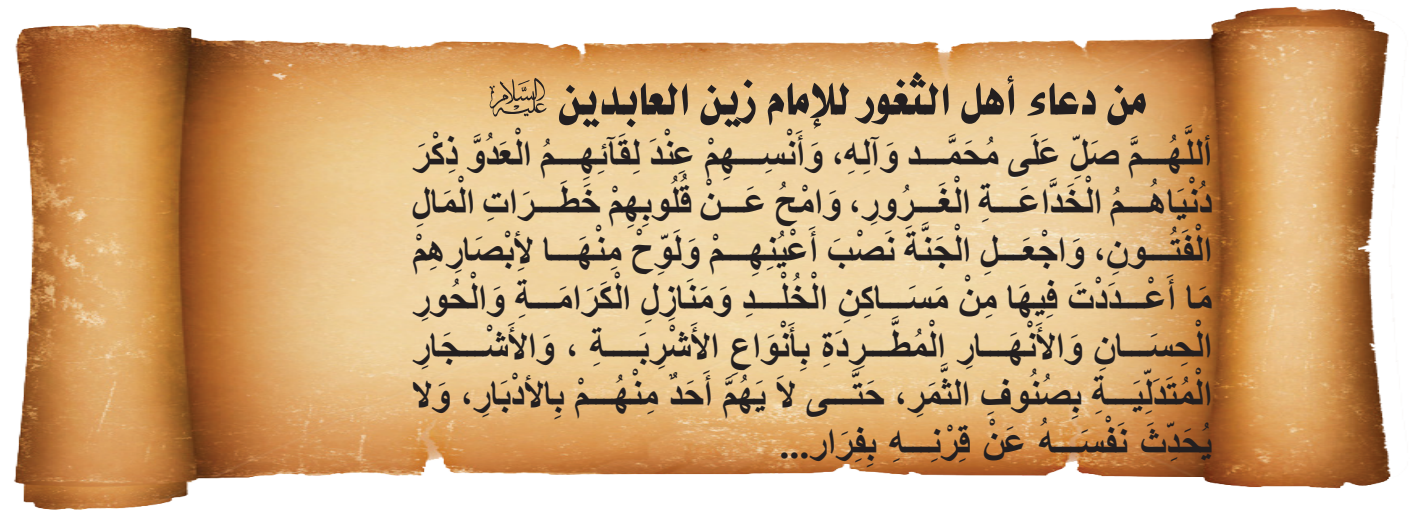 من دعاء أهل الثغور للإمام زين العابدين عليه السلام
أللَّهُمَّ صَلِّ عَلَى مُحَمَّد وَآلِهِ، وَأَنْسِهِمْ عِنْدَ لِقَآئِهِمُ الْعَدُوَّ ذِكْرَ
دُنْيَاهُمُ الْخَدَّاعَةِ الْغَرُورِ، وَامْحُ عَنْ قُلُوبِهِمْ خَطَرَاتِ الْمَالِ
الْفَتُونِ، وَاجْعَلِ الْجَنَّةَ نَصْبَ أَعْيُنِهِمْ وَلَوِّحْ مِنْهَا لأِبْصَارِهِمْ
مَا أَعْدَدْتَ فِيهَا مِنْ مَسَاكِنِ الْخُلْدِ وَمَنَازِلِ الْكَرَامَةِ وَالْحُورِ
الْحِسَانِ وَالأَنْهَارِ الْمُطَّرِدَةِ بِأَنْوَاعِ الأَشْرِبَةِ ، وَالأَشْجَارِ
الْمُتَدَلِّيَةِ بِصُنُوفِ الثَّمَرِ، حَتَّى لاَ يَهُمَّ أَحَدٌ مِنْهُمْ بِالأدْبَارِ، وَلا
يُحَدِّثَ نَفْسَهُ عَنْ قِرْنِهِ بِفِرَار...